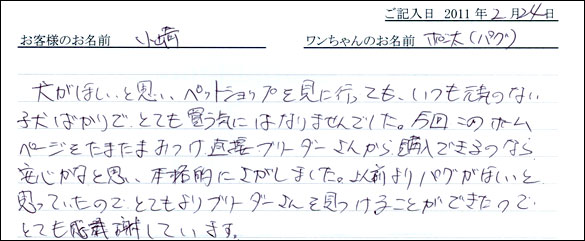 ご記入日 2011年2月24日
お客様のお名前 小崎 ワンちゃんのお名前 ポン太(パグ)
犬がほしいと思い、ペットショップを見に行っても、いつも元気のない
子犬ばかりで、とても買う気にはなりませんでした。今回このホーム
ページをたまたまみつけ直接ブリーダーさんから購入できるのなら
安心かなと思い、本格的にさがしました。以前よりパグがほしいと
思っていたので、とてもよりブリーダーさんを見つけることができたので
とても感謝しています。